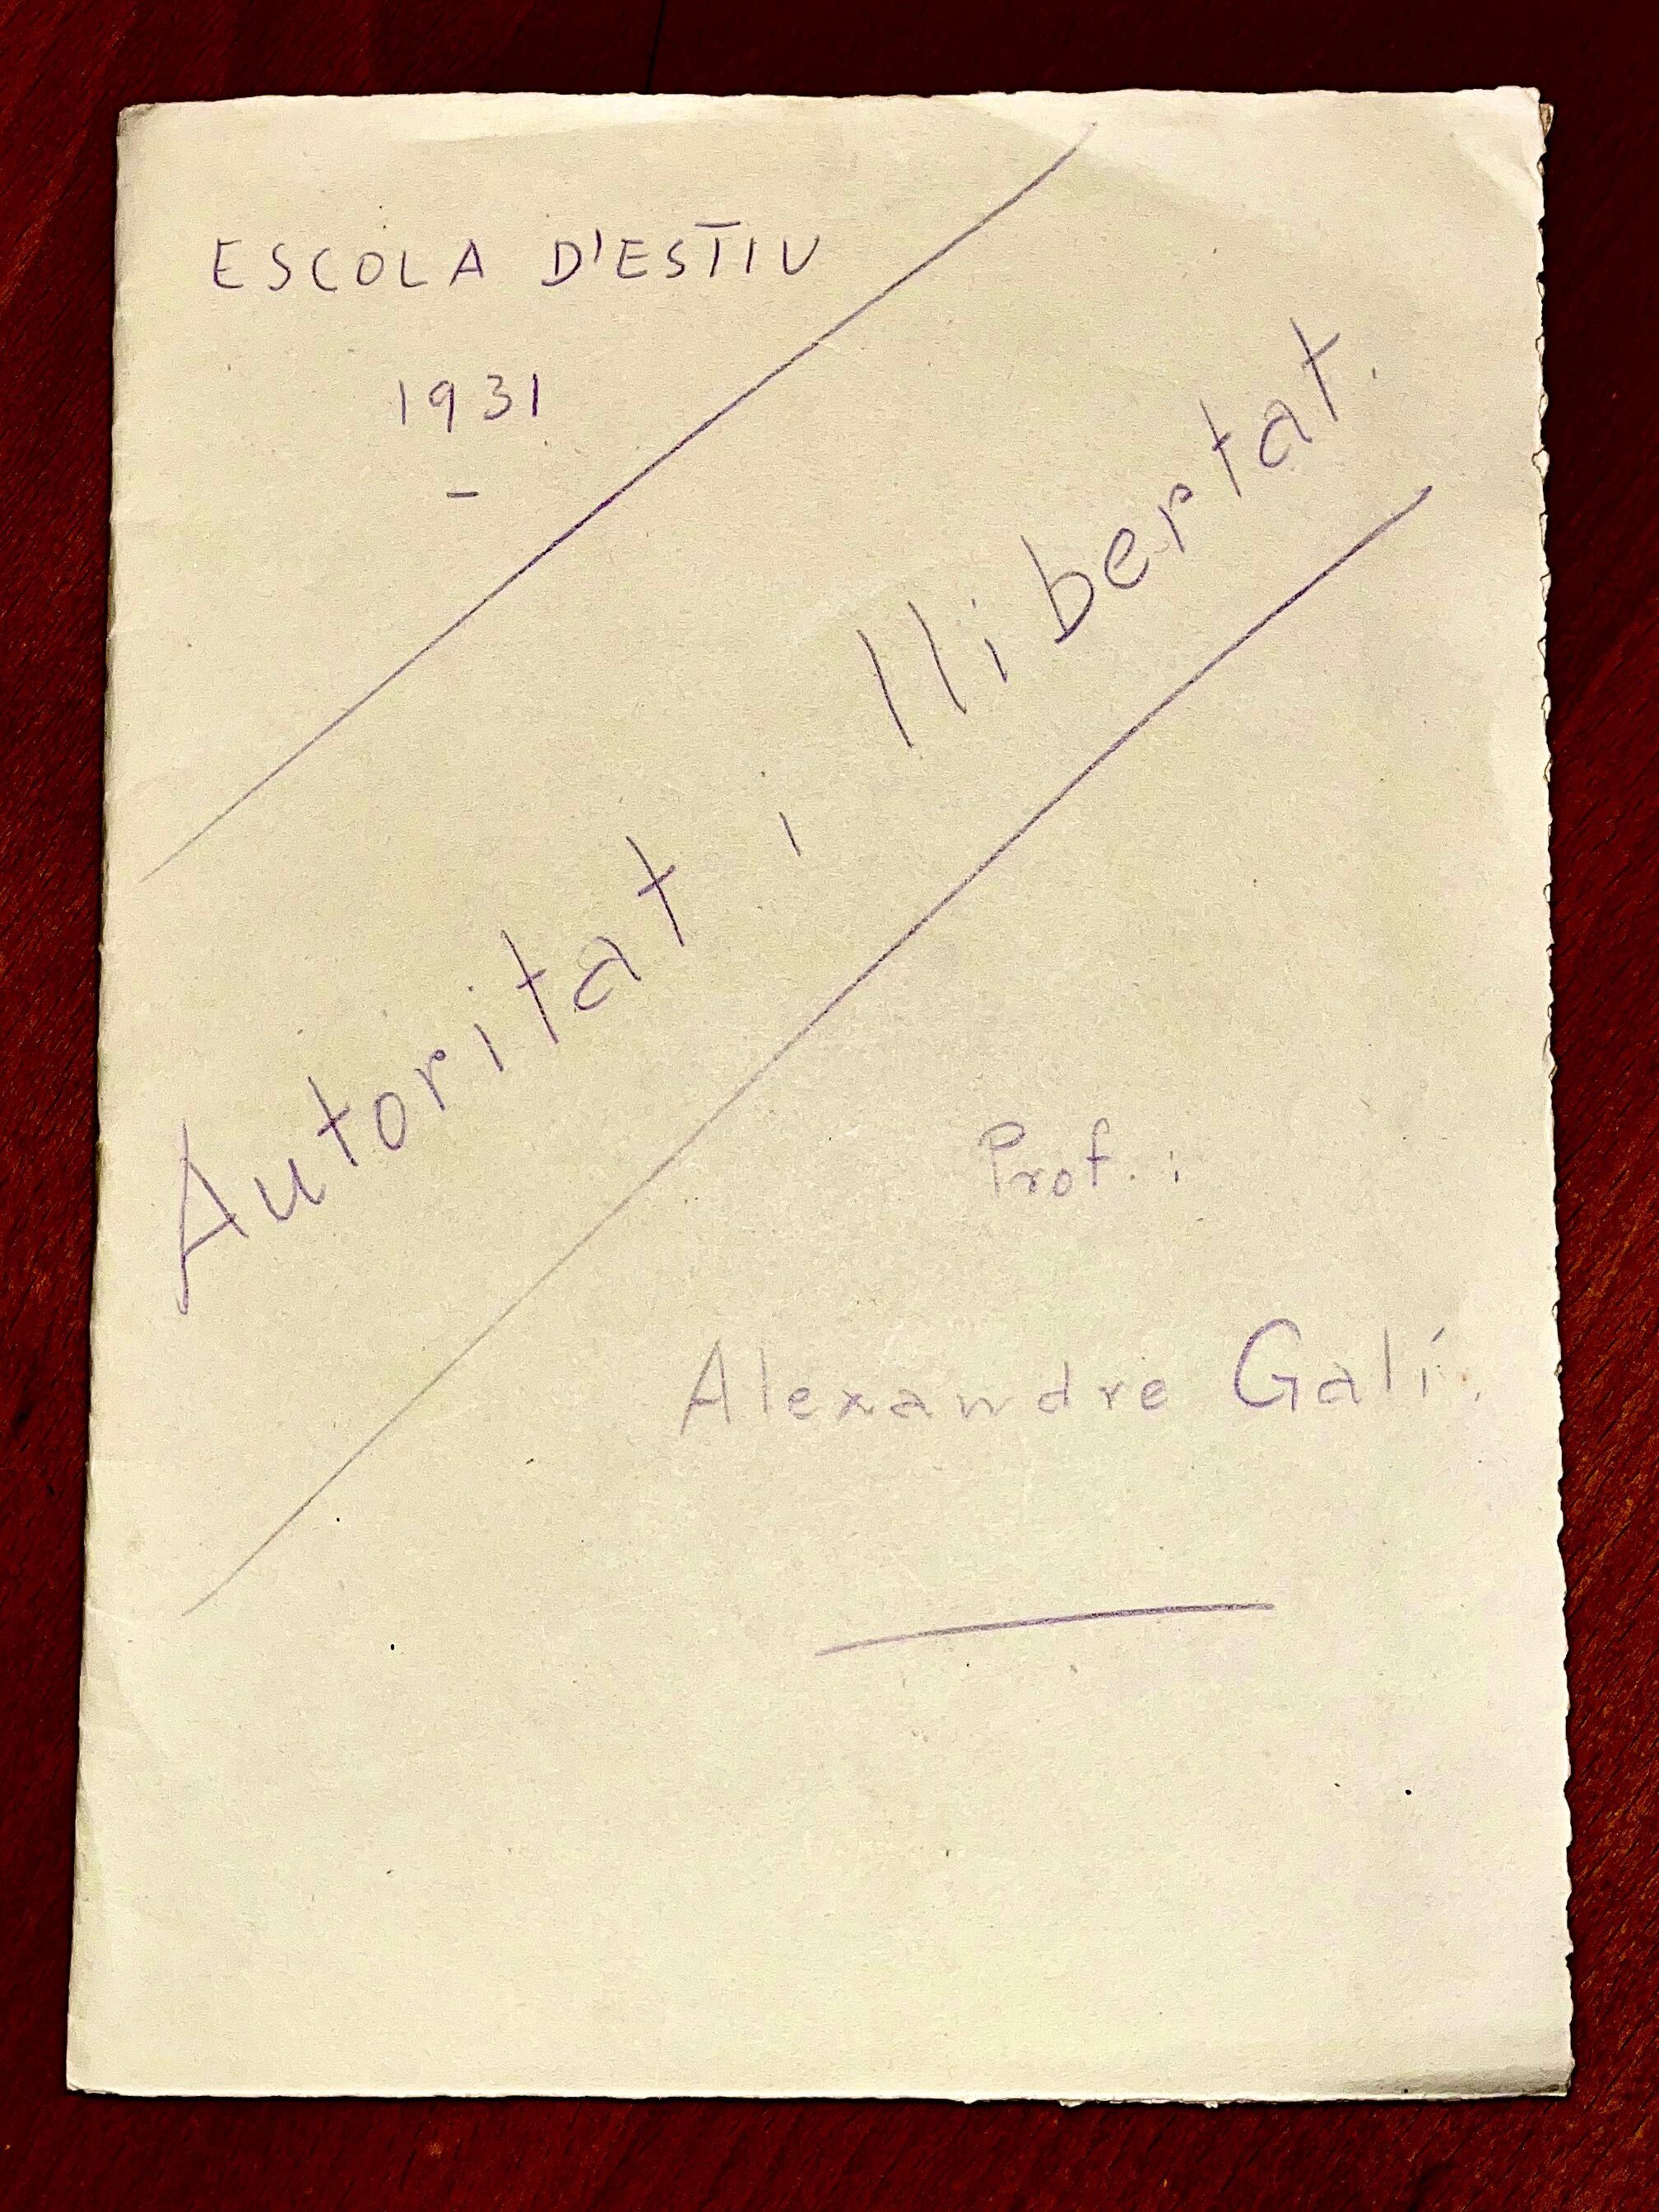 ESCOLA D'ESTIU
1931
Autoritat i llibertat.
Prof.:
Alexandre Galí.